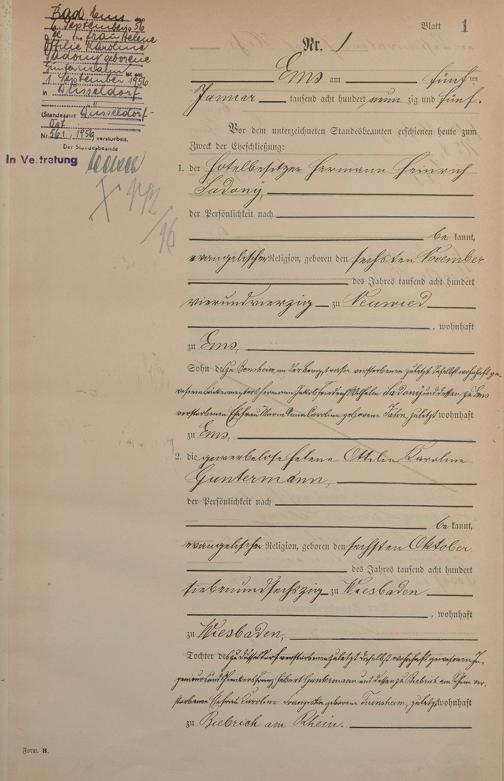 Bad Ems
6. September 56
Frau Helene
Ottilie Karoline
Ladony geborene
Guntermann
1. September 1956
in Düsseldorf
(Standesamt Düsseldorf-
Ost
1956) verstorben.
Der Standesbeamte
In Vertretung
Blatt 1
Nr. 1
Ems am fünften
Januar tausend acht hundert neunzig und fünf.
Vor dem unterzeichneten Standesbeamten erschienen heute zum
Zweck der Eheschließung:
1. der Hotelbesitzer Hermann Heinrich
Ladony,
der Persönlichkeit nach
bekannt,
evangelischer Religion, geboren den sechsten November
des Jahres tausend acht hundert
vierundvierzig zu Neuwied
, wohnhaft
zu Ems,
Sohn des zu verstorbenen zuletzt daselbst wohnhaft ge-
wesenen Hermann Ladony und dessen zu Ems
verstorbenen Ehefrau geborene zuletzt wohnhaft
zu Ems,
2. die gewerbelose Helene Ottilie Karoline
Guntermann,
der Persönlichkeit nach
bekannt,
evangelischer Religion, geboren den sechsten Oktober
des Jahres tausend acht hundert
siebenundsechszig zu Wiesbaden
, wohnhaft
zu Wiesbaden,
Tochter des zu Düsseldorf verstorbenen zuletzt daselbst wohnhaft gewesenen In-
genieurs Guntermann und dessen zu Biebrich am Rhein ver-
storbenen Ehefrau Caroline geborene zuletzt wohnhaft
zu Biebrich am Rhein.
Form. B.